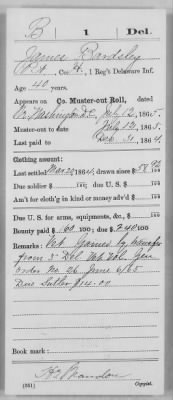 B 1 Del.
James Bardsley
Pvt., Co. H, 1 Reg't Delaware Inf.
Age 40 years.
Appears on Co. Muster-out Roll, dated
Nr. Washington D.C. July 12, 1865.
Muster-out to date July 12, 1865.
Last paid to Dec. 31, 1864.
Clothing account:
Last settled 1864; drawn since $ 58 92/100
Due soldier $ 100; due U. S. $ 100
Am't for cloth'g in kind or money adv'd $ 100
Due U. S. for arms, equipments, &c., $ 100
Bounty paid $ 160 100; due $ 240 100
Remarks: Vet. Gained by transfer
from 3 Del. Vols. Gen
order No. 26 June 6/65
Due Sutler $14.00
Book mark:
(361) Copyist.